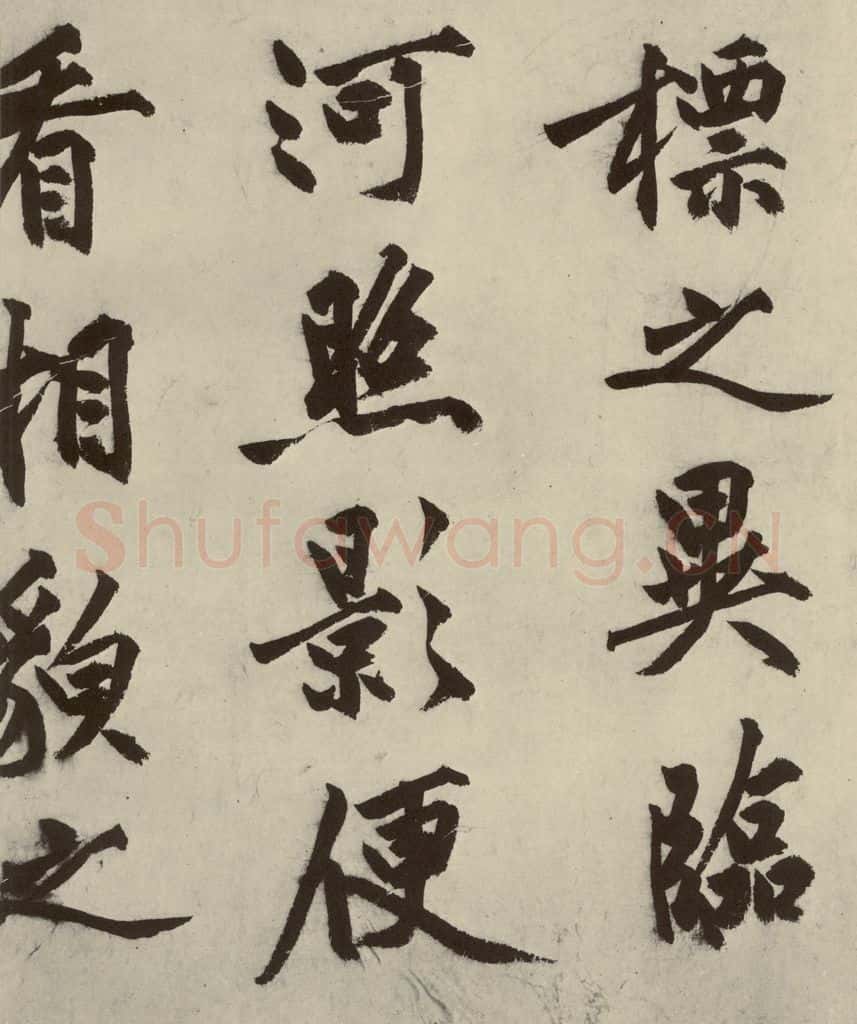 標之異臨
河照影便
看相貌之
Shufawang.CN